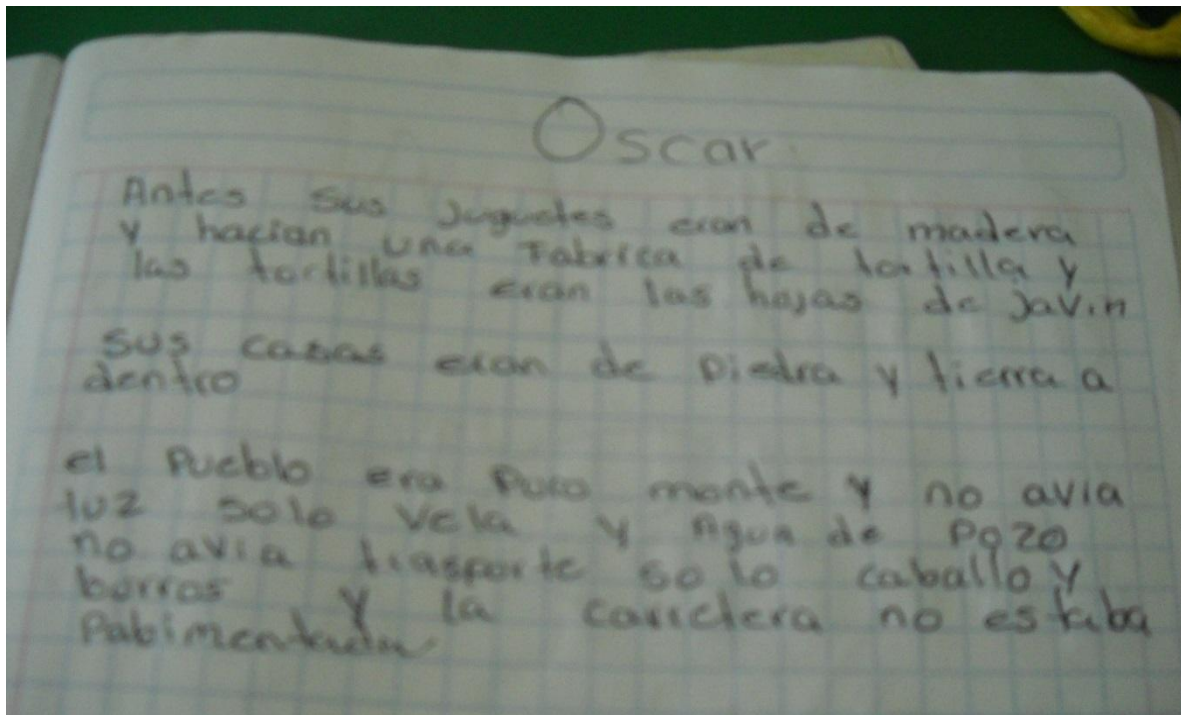 Oscar
Antes sus juguetes eran de madera
y hacian una Fabrica de tortilla y
las tortillas eran las hojas de Javin
sus casas eran de piedra y tierra a
dentro
el Pueblo era puro monte y no avia
luz solo vela y Agua de Pozo
no avia trasporte solo caballo y
borros y la carretera no estaba
Pabimentada